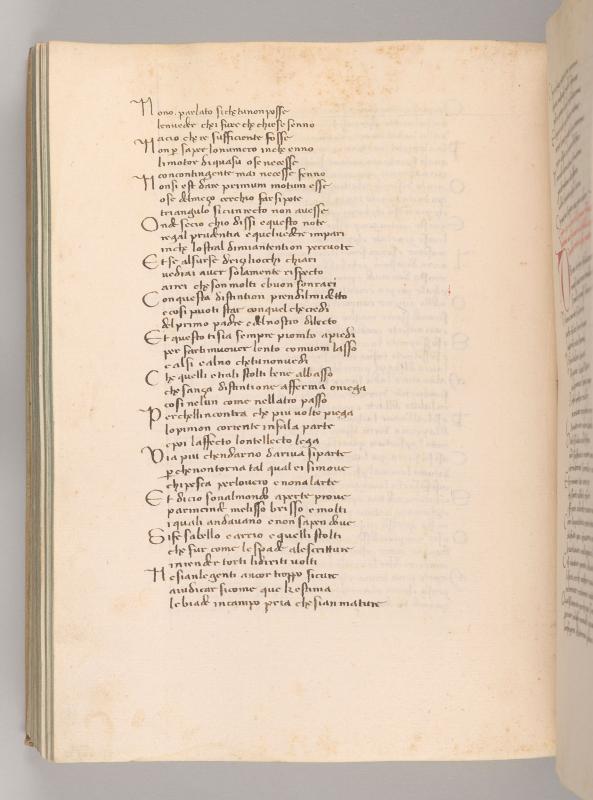 Nono parlato sichetunonposse
benveder chei fu re che chiese senno
acio che re sufficiente fosse
Non per saper lonumero inche enno
li motor diquasu ose necesse
concontingente mai necesse fenno
Nonsi est dare primum motum esse
ose delmeço cerchio farsipote
triangulo sicunrecto non avesse
Onde secio chio dissi equesto note
regal prudentia equelvedere impari
inche lostral dimiantention percuote
Et se alsurse deigliocchi chiari
vedrai aver solamente rispecto
airei che son molti ebuon son rari
Con questa distintion prendilmi detto
ecosi puoti star conquel checredi
del primo padre edelnostro dilecto
Et questo tisia sempre piombo apiedi
per farti muover lento comuom lasso
ealsi ealno chetunonvedi
Che quelli etrali stolti bene albasso
che sança distintione afferma oniega
cosi nelun come nellatro passo
Perchellincontra che piu volte piega
lopinion corrente infalsa parte
epoi laffecto lontellecto lega
Via piu chendarno dariva siparte
perchenontorna tal qual ei simove
chipesca perlovero enonalarte
Et dicio sonalmondo aperte prove
parmenide melisso brisso emolti
iquali andavano enon sapendove
Si fe sabello earrio equelli stolti
che fur come lespade alescritture
inrender torti lidiriti volti
Ne sianlegenti ancor troppo sicure
aiudicar sicome quei chestima
lebiade incampo pria chesian mature